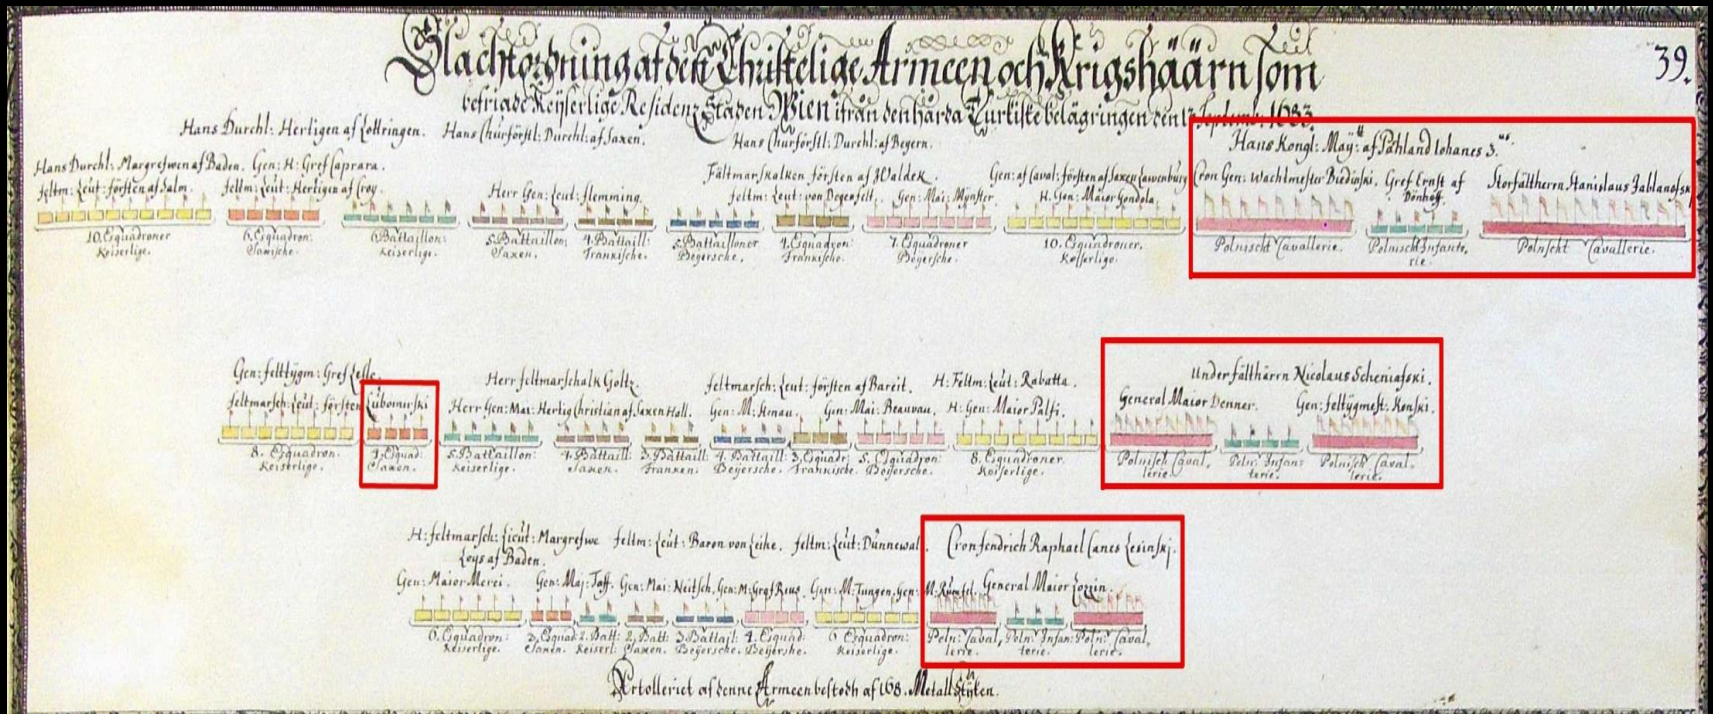 Slachtordning af den Christelige Armeen och Krigshäärn som
39.
befriade Keyserlige Residenz Staden Wien ifrån den hårda Turkiske belägringen den 12 Septemb: 1683.
Hans Durchl: Hertigen af Lottringen. Hans Churförstl: Durchl: af Saxen. Hans Churförstl: Durchl: af Beyern. Hans Kongl: May: af Påhland Iohanes 3.
Hans Durchl: Margrefwen af Baden. Gen: H: Gref Caprara. Fältmarskalken försten af Waldek. Gen: af Caval: försten af Saxen Lawenburg Cron Gen: Wachtmester Gref Ernst af Dönhoff. Storfältherrn Stanislaus Jablanofski
feltm: Leut: försten af Salm. feltm: Leut: Hertigen af Croy. Herr Gen: Leut: flemming. feltm: Leut: von Degenfelt. Gen: Mai: Mÿnster. H. Gen: Maior Gondola.
10. Esquadroner Keiserlige. 6. Esquadron: Saxiske. 6 Battaillon: Keiserlige. 5. Battaillon: Saxen. 4. Battaill: Frankische. 5. Battailloner Beyersche. 4. Esquadron: Fränkische. 7. Esquadroner Beyersche. 10. Esquadroner. Keiserlige. Polnischt Cavallerie. Polnischt Infanterie. Polnscht Cavallerie.
Gen: felttygm: Gref Lesle. Herr feltmarschalk Goltz. feltmarsch: Leut: försten af Bareit. H: Feltm: Leut: Rabatta. Underfälthärrn Nicolaus Scheniafski.
feltmarsch: Leut: försten Lubomirski Herr Gen: Mai: Hertig Christian af Saxen Hall. Gen: M: Gen: Mai: Beauvau. H: Gen: Maior Palfi. General Maior Denner. Gen: feltÿgmest: Konski.
8. Esquadron. Keiserlige. Esquad: Saxen. 5. Battaillon: Keiserlige. 4. Battaill: Saxen. 3. Battaill: Franken: 4. Battaill: Beyersche. 3. Esquadr: Frankische. 5. Esquadron: Beyersche. 8. Esquadroner. Keiserlige. Polnisch Cavallerie. Poln: Infanterie. Polnisch Cavallerie.
H: feltmarsch: Lieut: Margrefwe Loys af Baden. feltm: Leut: Baron von Leihe. feltm: Leut: Dünnewal. Cronfendrich Raphael Canes Lesinski.
Gen: Maior Merci. Gen: Maj: Taff. Gen: Mai: Neitsch. Gen: M: Graf Reus. Gen: M: Tungen. Gen: M. Rumpel. General Maior
6. Esquadron: Keiserlige. 3, Esquad: Saxen. 2. Batt: Keiserl: 2, Batt: Saxen. 3. Battail: Beyersche. 4. Esquad: Beyershe. 6 Esquadron: Keiserlige. Poln: Cavallerie. Poln: Infanterie. Poln: Cavallerie.
Artolleriet af denne Armeen bestodh af 168. Metall Styken.